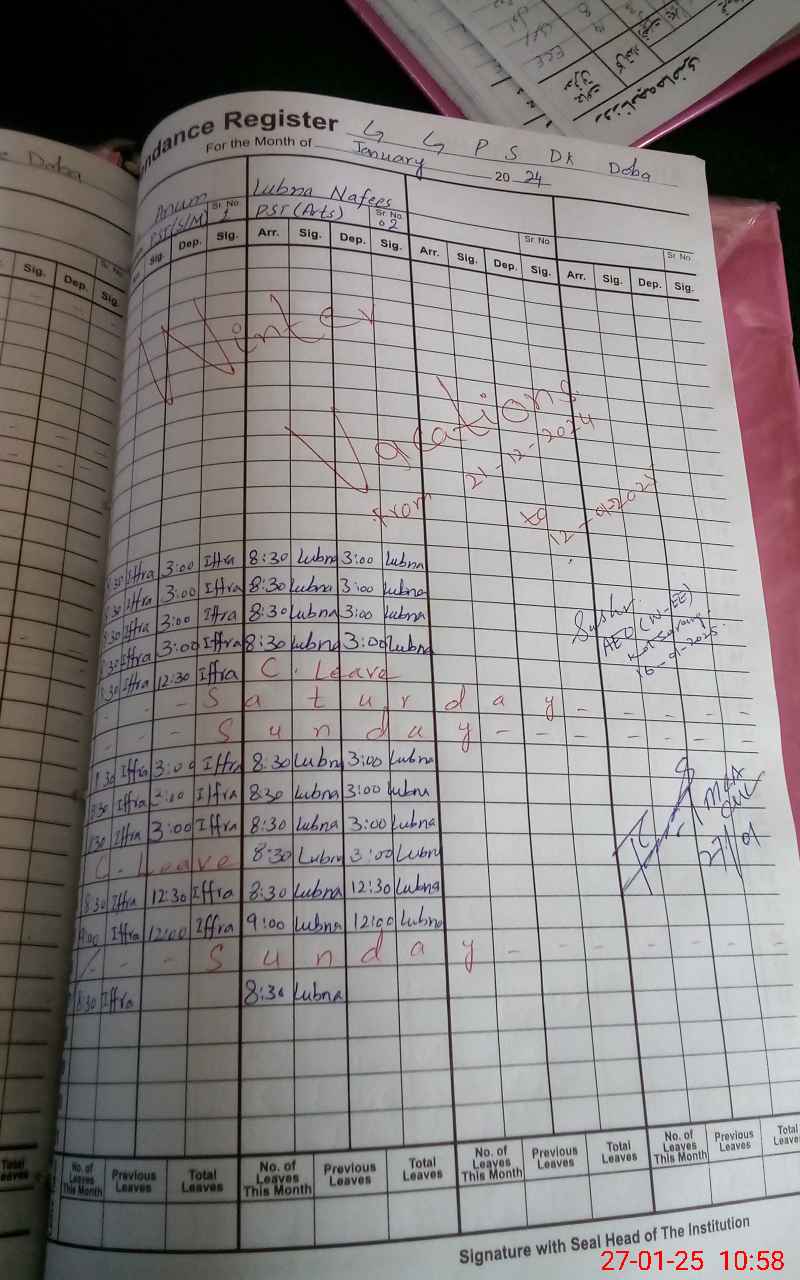 ndance Register G G P S Dk Doba
For the Month of January 20 24
Anum Sr No 1 Lubna Nafees
PST(S/M) PST (Arts) Sr No 02 Sr No Sr No
Sig. Dep. Sig. Arr. Sig. Dep. Sig. Arr. Sig. Dep. Sig. Arr. Sig. Dep. Sig.
Winter
Vacations
from 21-12-2024
to
8:30 Iffra 3:00 Iffra 8:30 Lubna 3:00 Lubna
8:30 Iffra 3:00 Iffra 8:30 Lubna 3:00 Lubna
8:30 Iffra 3:00 Iffra 8:30 Lubna 3:00 Lubna
8:30 Iffra 3:00 Iffra 8:30 Lubna 3:00 Lubna
8:30 Iffra 12:30 Iffra C. Leave
- - - S a t u r d a y - - - - -
- - - S u n d a y - - - - - -
AEO (W-EE)
16-01-2025
8:30 Iffra 3:00 Iffra 8:30 Lubna 3:00 Lubna
8:30 Iffra 3:00 Iffra 8:30 Lubna 3:00 Lubna
8:30 Iffra 3:00 Iffra 8:30 Lubna 3:00 Lubna
C. Leave 8:30 Lubna 3:00 Lubna
27/01
8:30 Iffra 12:30 Iffra 8:30 Lubna 12:30 Lubna
9:00 Iffra 12:00 Iffra 9:00 Lubna 12:00 Lubna
- - - S u n d a y - - - - - - -
8:30 Iffra 8:30 Lubna
No. of Leaves This Month Previous Leaves Total Leaves No. of Leaves This Month Previous Leaves Total Leaves No. of Leaves This Month Previous Leaves Total Leaves No. of Leaves This Month Previous Leaves Total Leaves
Signature with Seal Head of The Institution
Doba
Sig. Dep. Sig.
Sr No
Total Leaves
27-01-25 10:58